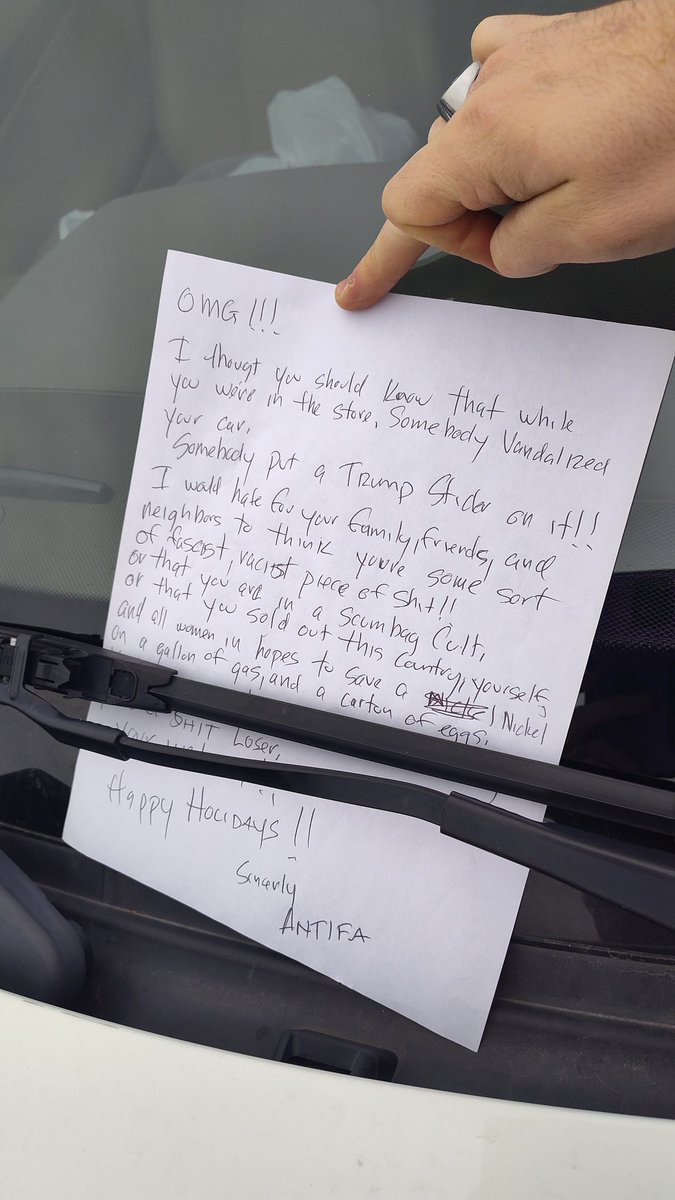 OMG!!!
I thougt you should know that while
you we're in the store, Somebody Vandalized
your car,
Somebody put a Trump Sticker on it!!
I would hate for your family, friends, and
neighbors to think you're some sort
of fascist, racist piece of shit!!
or that you are in a scumbag Cult,
or that you sold out this Country, yourself,
and all women in hopes to save a 1 Nickel
on a gallon of gas, and a carton of eggs.
SHIT LOSER,
Happy HoliDAYS!!
Sincerly
ANTIFA